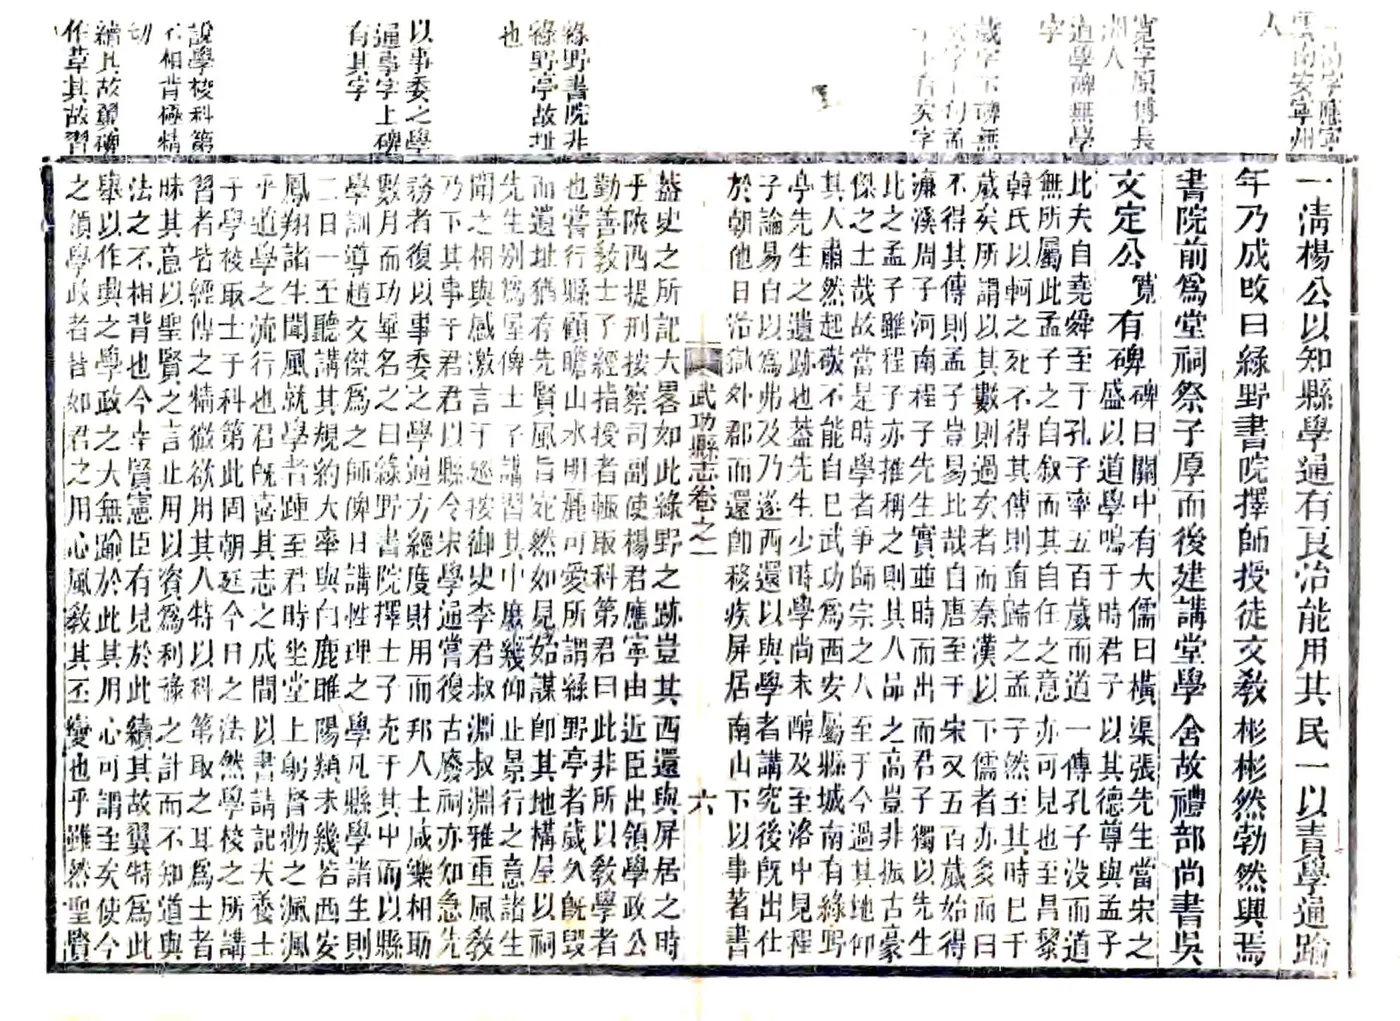 一清字應寧
雲南安寧州
人
寬字原博長
洲人
道學碑無學
字
歲字下碑無
字有矣字
綠野書院非
綠野亭故址
也
以事委之學
通事字上碑
有其字
說學校科第
不相背極精
切
續其故翼碑
作草其故習
一淸楊公以知縣學通有良治能用其民一以責學通踰
年乃成改曰綠野書院擇師授徒文教彬彬然勃然興焉
書院前爲堂祠祭子厚而後建講堂學舍故禮部尚書吳
文定公寬有碑碑曰關中有大儒曰橫渠張先生當宋之
盛以道學鳴于時君子以其德尊與孟子
此夫自堯舜至于孔子率五百歲而道一傳孔子没而道
無所屬此孟子之自叙而其自任之意亦可見也至昌黎
韓氏以軻之死不得其傳則直歸之孟子然至其時已千
歲矣所謂以其數則過矣者而秦漢以下儒者亦多而曰
不得其傳則孟子豈易比哉自唐至于宋又五百歲始得
濂溪周子河南程子先生實並時而出而君子獨以先生
比之孟子雖程子亦推稱之則其人品之高豈非振古豪
傑之士哉故當是時學者爭師宗之人至于今過其地仰
其人肅然起敬不能自已武功爲西安屬縣城南有綠野
亭先生之遺跡也葢先生少時學尚未醇及至洛中見程
子論易自以爲弗及乃遂西還以與學者講究後旣出仕
於朝他日治獄外郡而還卽移疾屏居南山下以事著書
武功縣志卷之一
六
葢史之所記大畧如此綠野之跡豈其西還與屏居之時
乎陝西提刑按察司副使楊君應寧由近臣出領學政公
勤善教士子經指授者輒取科第君曰此非所以敎學者
也嘗行縣顧瞻山水明麗可愛所謂綠野亭者歲久旣毀
而遺址猶存先賢風旨宛然如見始謀卽其地構屋以祠
先生别爲屋俾士子講習其中庶幾仰止景行之意諸生
聞之相與感激言于廵按御史李君叔淵叔淵雅重風敎
乃下其事于君君以縣令宋學通嘗復古廢祠亦知急先
務者復以事委之學通方經度財用而邦人士咸樂相助
數月而功畢名之曰綠野書院擇士子充于其中而以縣
學訓導趙文傑爲之師俾日講性理之學凡縣學諸生則
二日一至聽講其規約大率與白鹿睢陽類未幾若西安
鳳翔諸生聞風就學者踵至君時坐堂上躬督勸之渢渢
乎道學之流行也君旣喜其志之成間以書請記夫養士
于學校取士于科第此周朝廷今日之法然學校之所講
習者皆經傳之精微欲用其人特以科第取之耳爲士者
昧其意以聖賢之言止用以資爲利祿之計而不知道與
法之不相背也今幸賢憲臣有見於此續其故翼特爲此
舉以作興之學政之大無踰於此其用心可謂至矣使今
之領學政者皆如君之用心風教其丕變也乎雖然聖賢